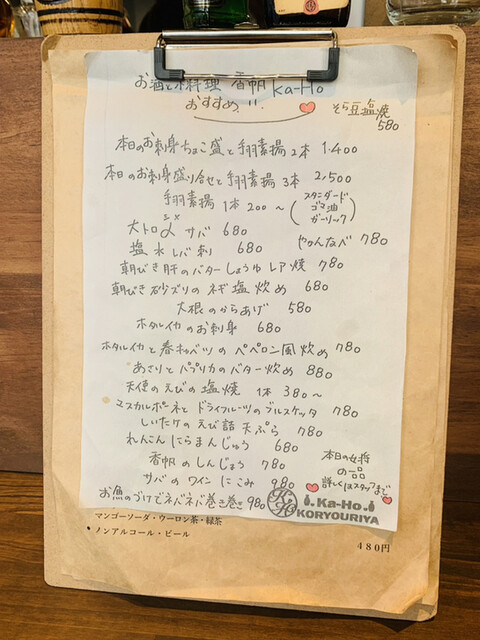 お酒と小料理 香帆 Ka-Ho
おすすめ!!
そら豆塩焼
580
本日のお刺身ちょこ盛と手羽素揚2本 1.400
本日のお刺身盛り合せと手羽素揚3本 2,500
手羽素揚1本200〜(スタンダード
ゴマ油
ガーリック)
大トロ〆サバ 680
シメ
やかんなべ 780
塩水レバ刺 680
朝びき肝のバターしょうゆレア焼 780
朝びき砂ズリのネギ塩炒め 680
大根のからあげ 580
ホタルイカのお刺身 680
ホタルイカと春キャベツのペペロン風炒め 780
あさりとパプリカのバター炒め 880
天使のえびの塩焼 1本 380〜
マスカルポーネとドライフルーツのブルスケッタ 780
しいたけのえび詰天ぷら 780
れんこんにらまんじゅう 680
香帆のしんじょう 780
サバのワインにこみ 980
お魚のづけでネバネバ巻き巻き 980
本日の女将
の一品
詳しくはスタッフまで
KH
Ka-Ho
KORYOURIYA
マンゴーソーダ・ウーロン茶・緑茶
ノンアルコール・ビール
480円